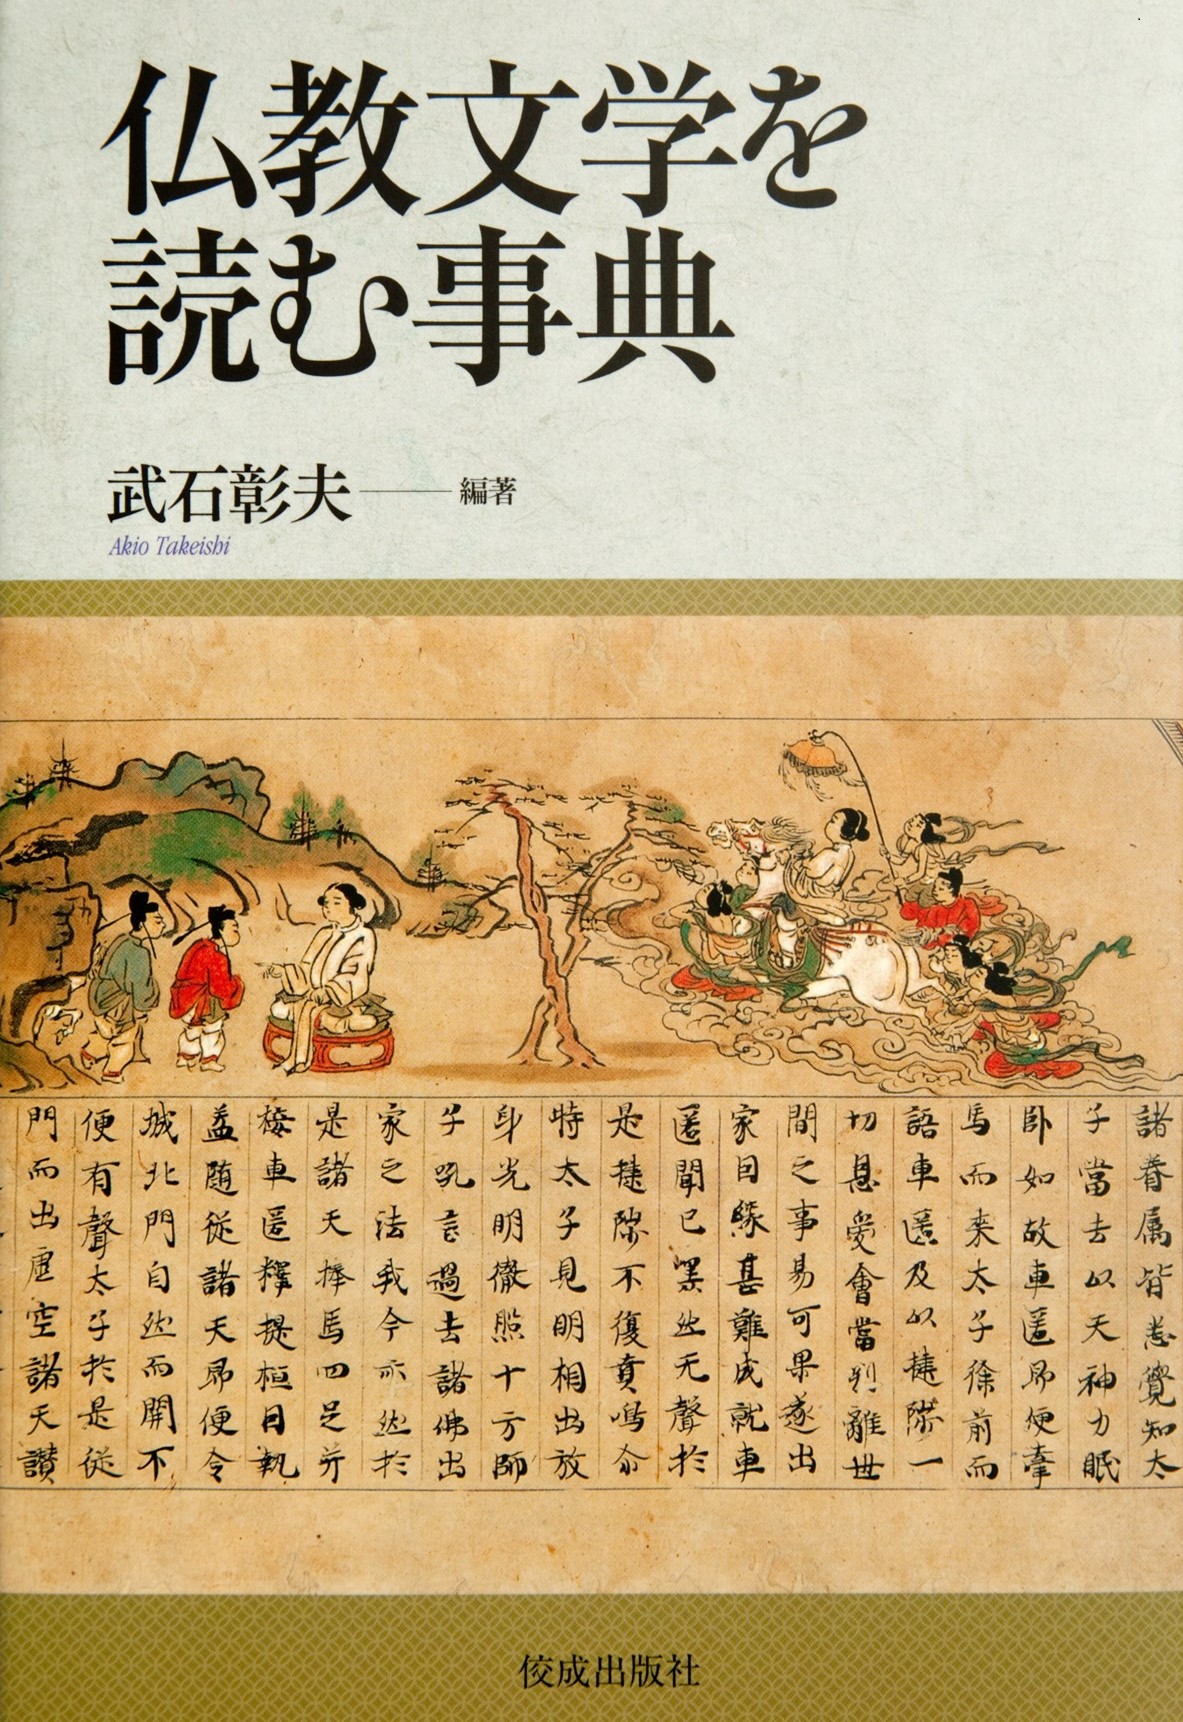 仏教文学を
読む事典
武石彰夫――編著
Akio Takeishi
諸眷属皆悉覺知太
子當去以天神力眠
卧如故車匿即便牽
馬而来太子徐前而
語車匿及以揵陟一
切恩愛會當別離世
間之事易可果遂出
家因縁甚難成就車
匿聞已嘿然无聲於
是揵陟不復賁鳴尒
時太子見明相出放
身光明徹照十方師
子吼言過去諸佛出
家之法我今亦然於
是諸天捧馬四足并
接車匿釋提桓因執
盖随従諸天即便令
城北門自然而開不
便有聲太子於是従
門而出虚空諸天讃
佼成出版社